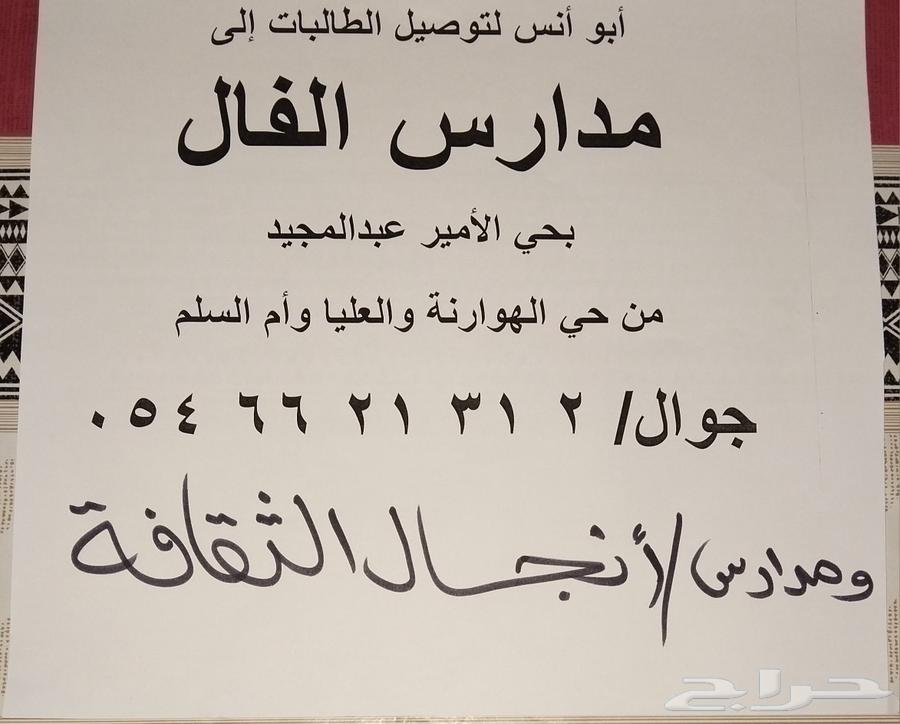 أبو أنس لتوصيل الطالبات إلى
مدارس الفال
بحي الأمير عبدالمجيد
من حي الهوارنة والعليا وأم السلم
جوال/ ٢ ٣١ ٢١ ٦٦ ٠٥٤
ومدارس/ أنجال الثقافة
حراج